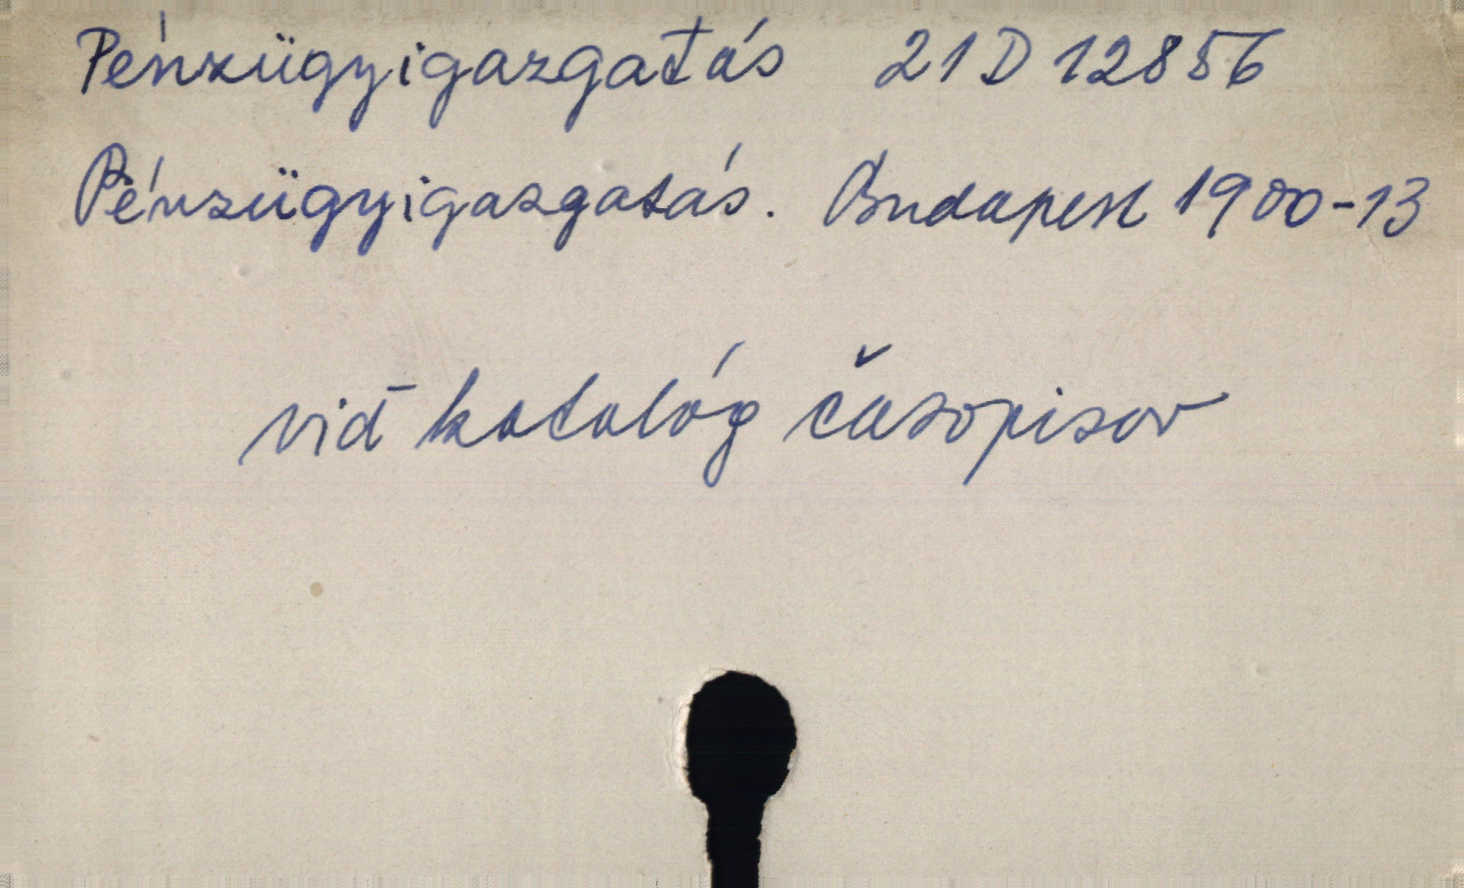 Pénzügyigazgatás 21 D 12856
Pénzügyigazgatás. Budapest 1900-13
viď katalóg časopisov